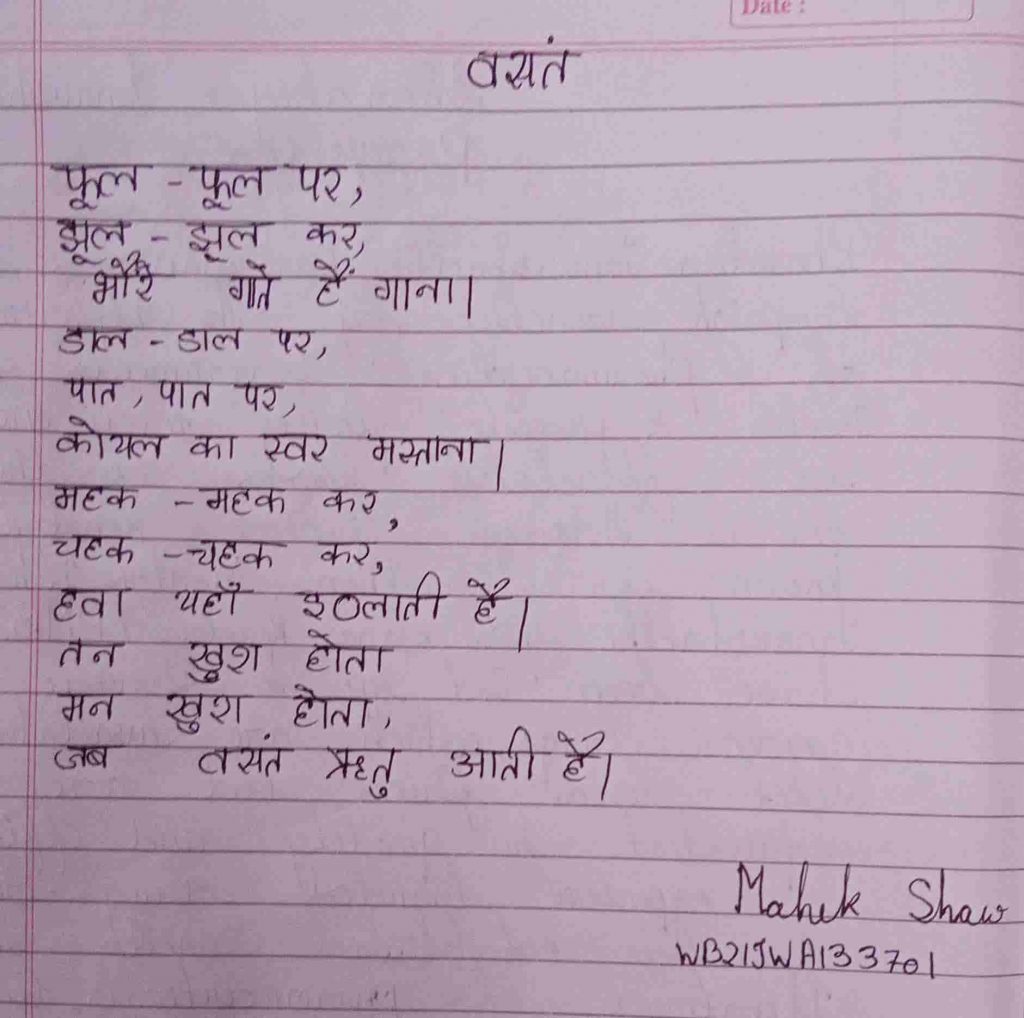 Date :
वसंत
फूल - फूल पर,
झूल - झूल कर,
भौंरे गाते हैं गाना।
डाल - डाल पर,
पात, पात पर,
कोयल का स्वर मस्ताना।
महक - महक कर,
चहक - चहक कर,
हवा यहाँ इठलाती है।
तन खुश होता
मन खुश होता,
जब वसंत ऋतु आती है।
Mahek Shaw
WB21JWA133701